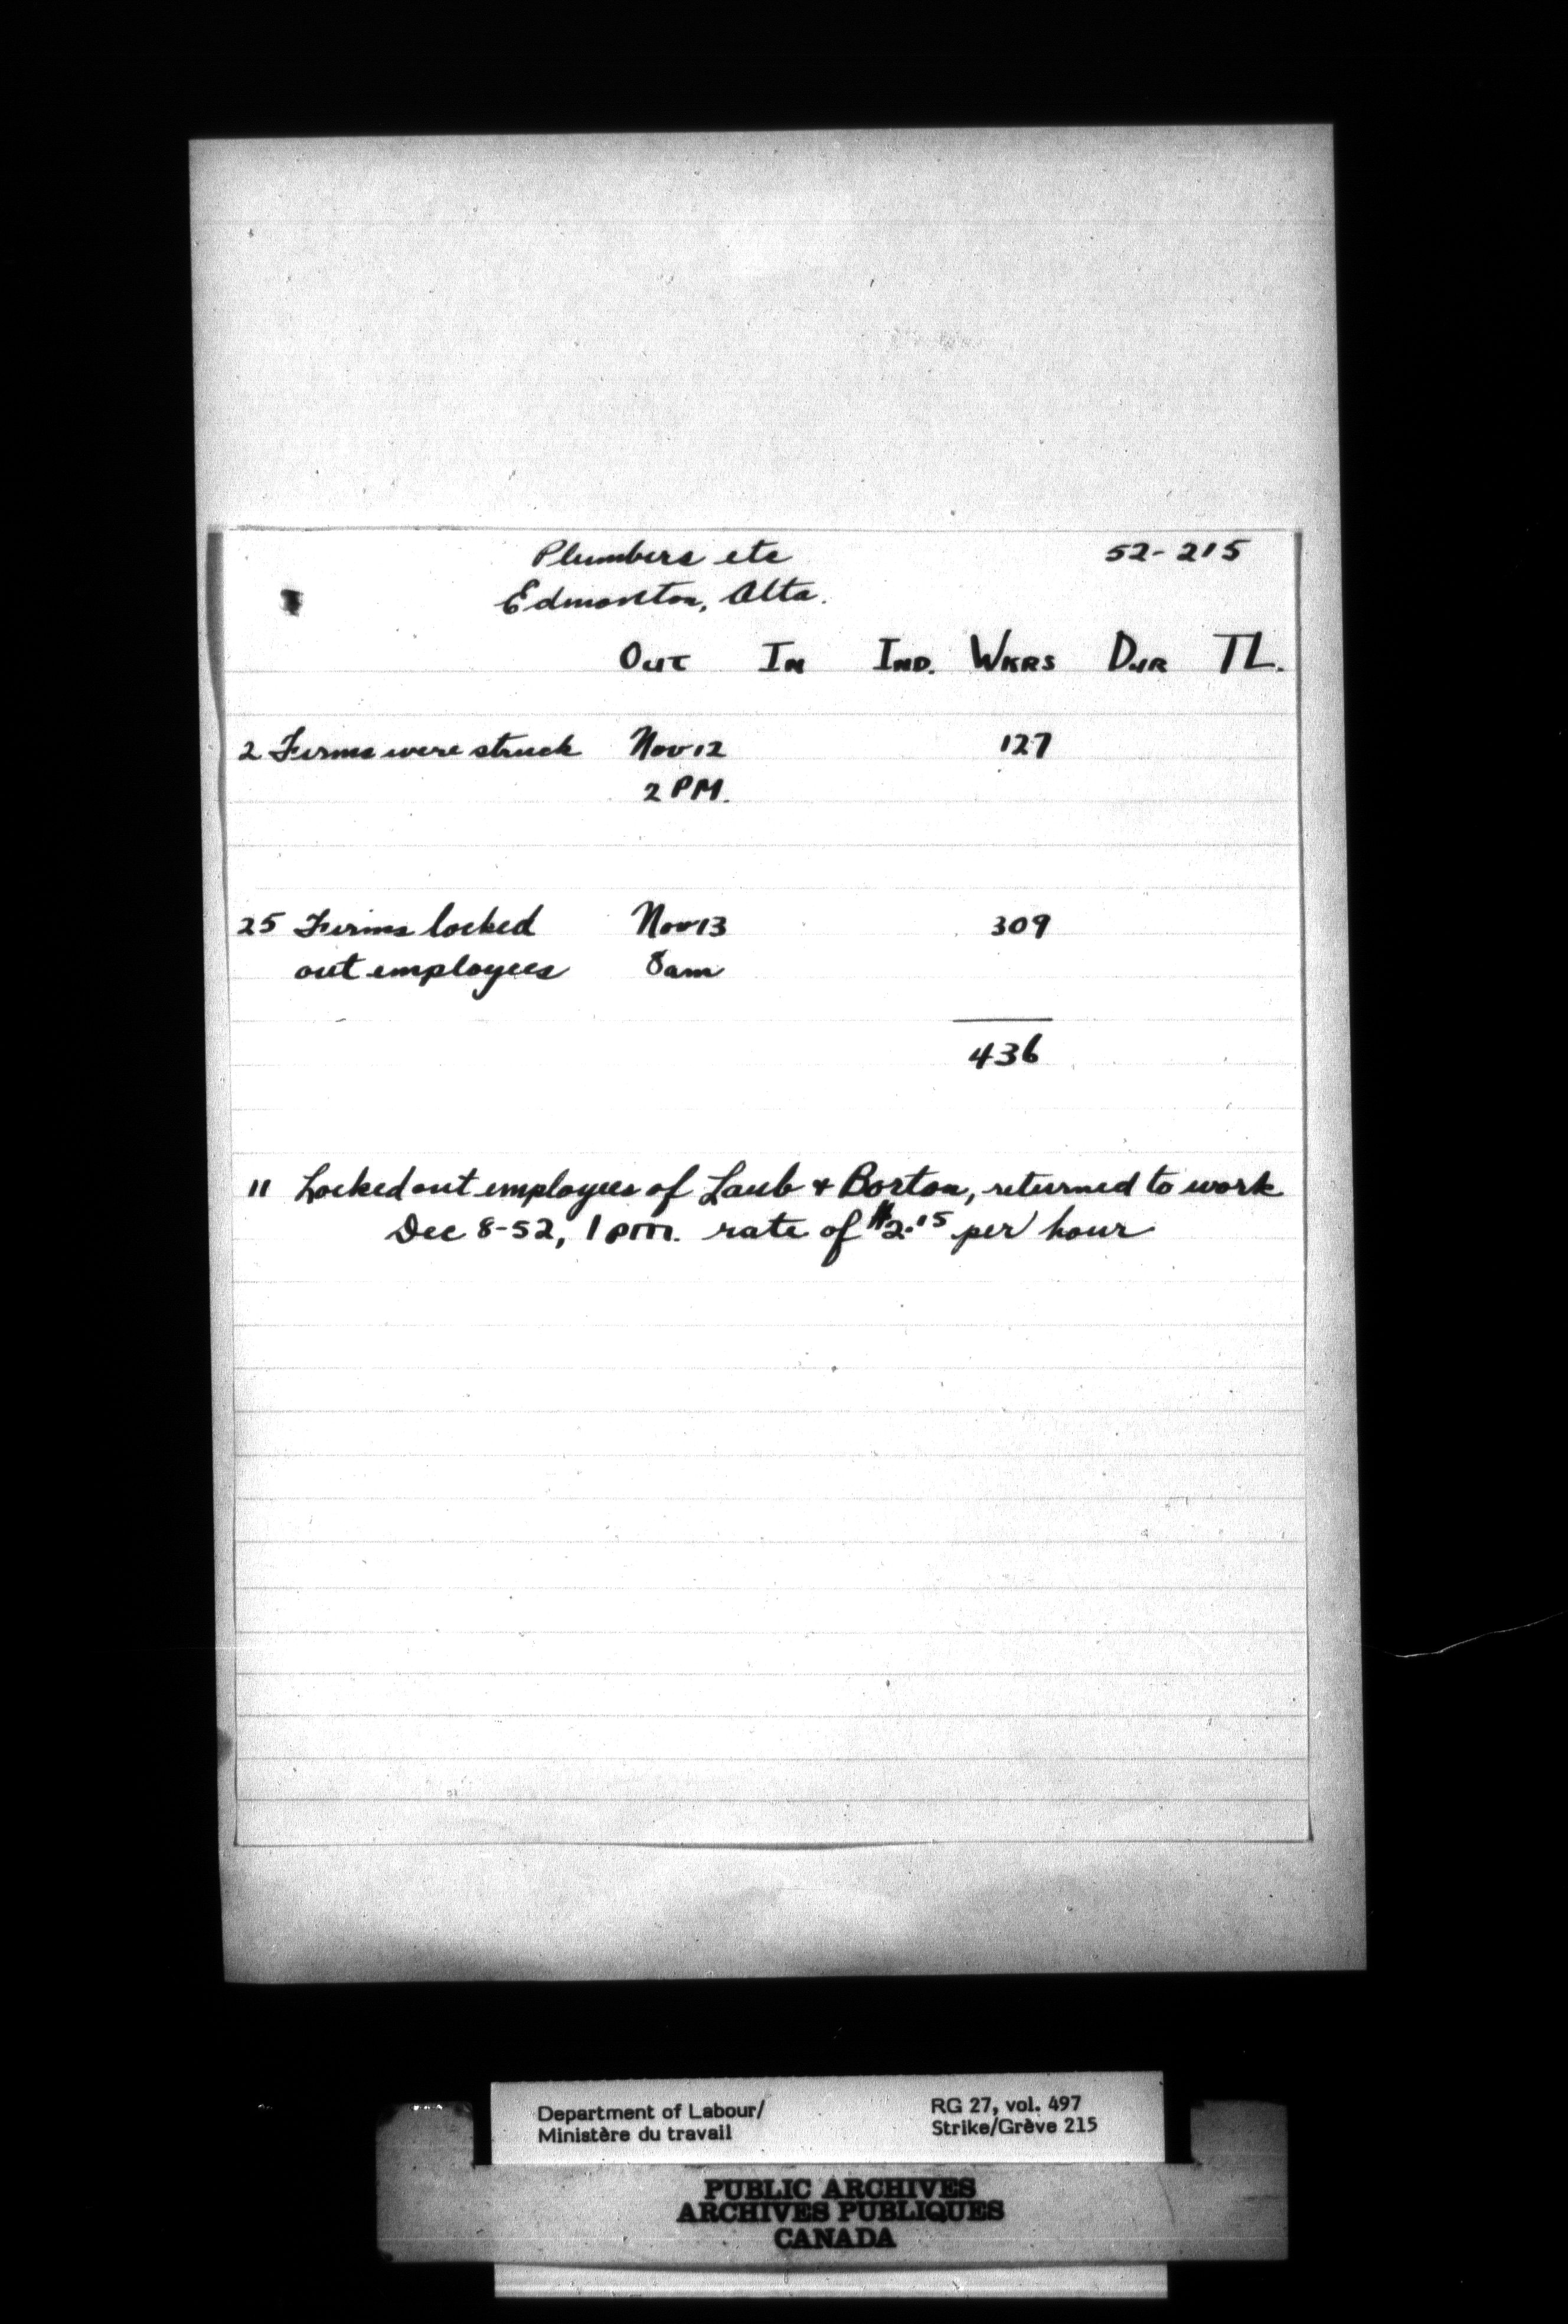 Plumbers etc 52-215
Edmonton, Alta.
OUT IN IND. WKRS DUR TL.
2 Firms were struck Nov 12 127
2 PM.
25 Firms locked Nov 13 309
out employees 8am
436
11 Locked out employees of Laub & Borton, returned to work
Dec 8-52, 1 pm. rate of $2.15 per hour
Department of Labour/ RG 27, vol. 497
Ministère du travail Strike/Grève 215
PUBLIC ARCHIVES
ARCHIVES PUBLIQUES
CANADA